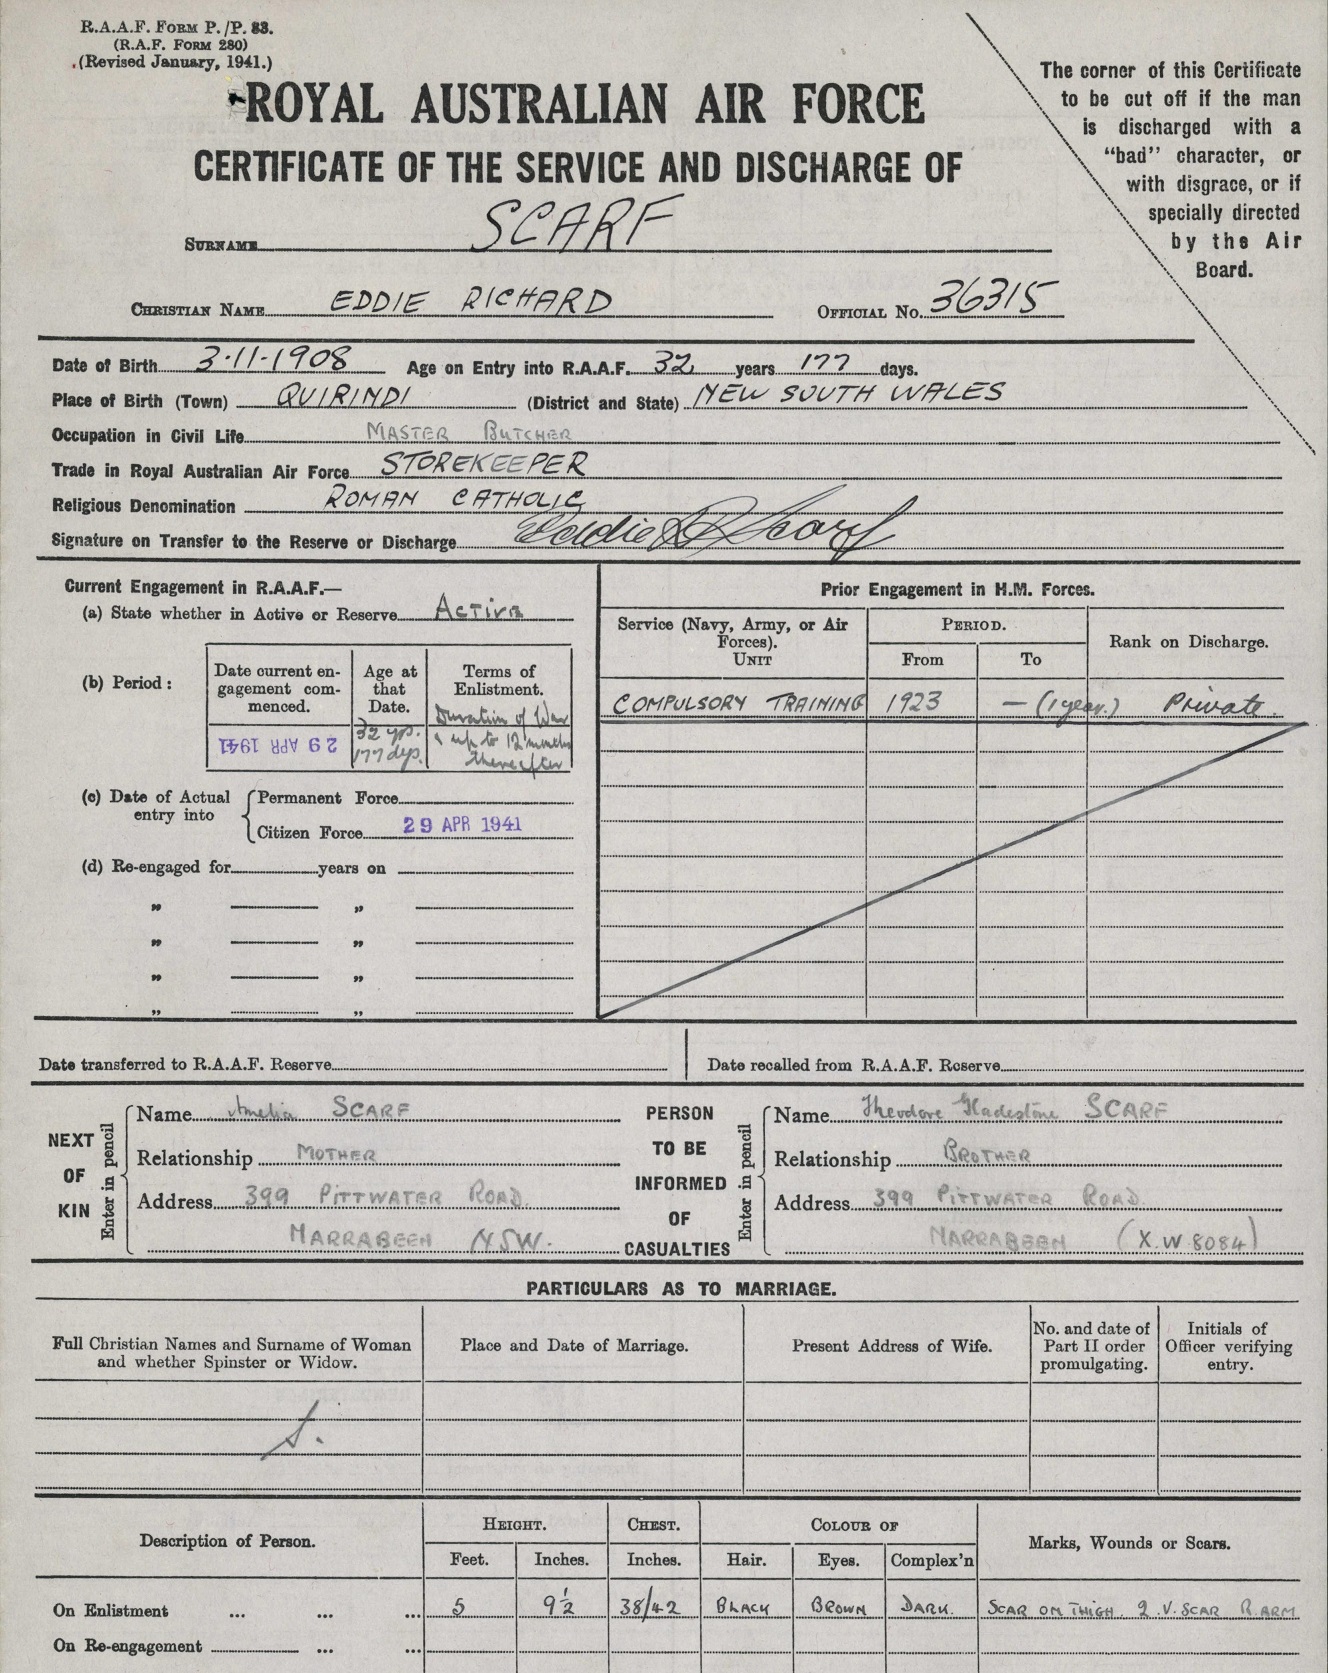 R.A.A.F. FORM P./P. 83.
(R.A.F. FORM 280)
(Revised January, 1941.)
The corner of this Certificate
to be cut off if the man
is discharged with a
"bad" character, or
with disgrace, or if
specially directed
by the Air
Board.
ROYAL AUSTRALIAN AIR FORCE
CERTIFICATE OF THE SERVICE AND DISCHARGE OF
SURNAME SCARF
CHRISTIAN NAME EDDIE RICHARD OFFICIAL No. 36315
Date of Birth 3·11·1908 Age on Entry into R.A.A.F. 32 years 177 days.
Place of Birth (Town) QUIRINDI (District and State) NEW SOUTH WALES
Occupation in Civil Life MASTER BUTCHER
Trade in Royal Australian Air Force STOREKEEPER
Religious Denomination ROMAN CATHOLIC
Signature on Transfer to the Reserve or Discharge Eddie R Scarf
Current Engagement in R.A.A.F.—
(a) State whether in Active or Reserve Active
(b) Period:
Date current en-
gagement com-
menced.
Age at
that
Date.
Terms of
Enlistment.
29 APR 1941
32 yrs.
177 dys.
Duration of War
& up to 12 months
thereafter
(c) Date of Actual entry into
Permanent Force
Citizen Force 29 APR 1941
(d) Re-engaged for years on
" "
" "
" "
" "
Prior Engagement in H.M. Forces.
Service (Navy, Army, or Air
Forces).
UNIT
PERIOD.
From To
Rank on Discharge.
COMPULSORY TRAINING 1923 — (1 year.) Private.
Date transferred to R.A.A.F. Reserve
Date recalled from R.A.A.F. Reserve
NEXT
OF
KIN
Enter in pencil
Name Amelia SCARF
Relationship MOTHER
Address 399 PITTWATER ROAD.
NARRABEEN NSW.
PERSON
TO BE
INFORMED
OF
CASUALTIES
Enter in pencil
Name Theodore Gladestone SCARF
Relationship BROTHER
Address 399 PITTWATER ROAD.
NARRABEEN (X.W.8084)
PARTICULARS AS TO MARRIAGE.
Full Christian Names and Surname of Woman
and whether Spinster or Widow.
Place and Date of Marriage.
Present Address of Wife.
No. and date of
Part II order
promulgating.
Initials of
Officer verifying
entry.
S.
Description of Person.
HEIGHT.
Feet. Inches.
CHEST.
Inches.
COLOUR OF
Hair. Eyes. Complex'n
Marks, Wounds or Scars.
On Enlistment ... ... ... 5 9½ 38/42 BLACK BROWN DARK. SCAR ON THIGH. 2.V.SCAR R.ARM
On Re-engagement ... ...